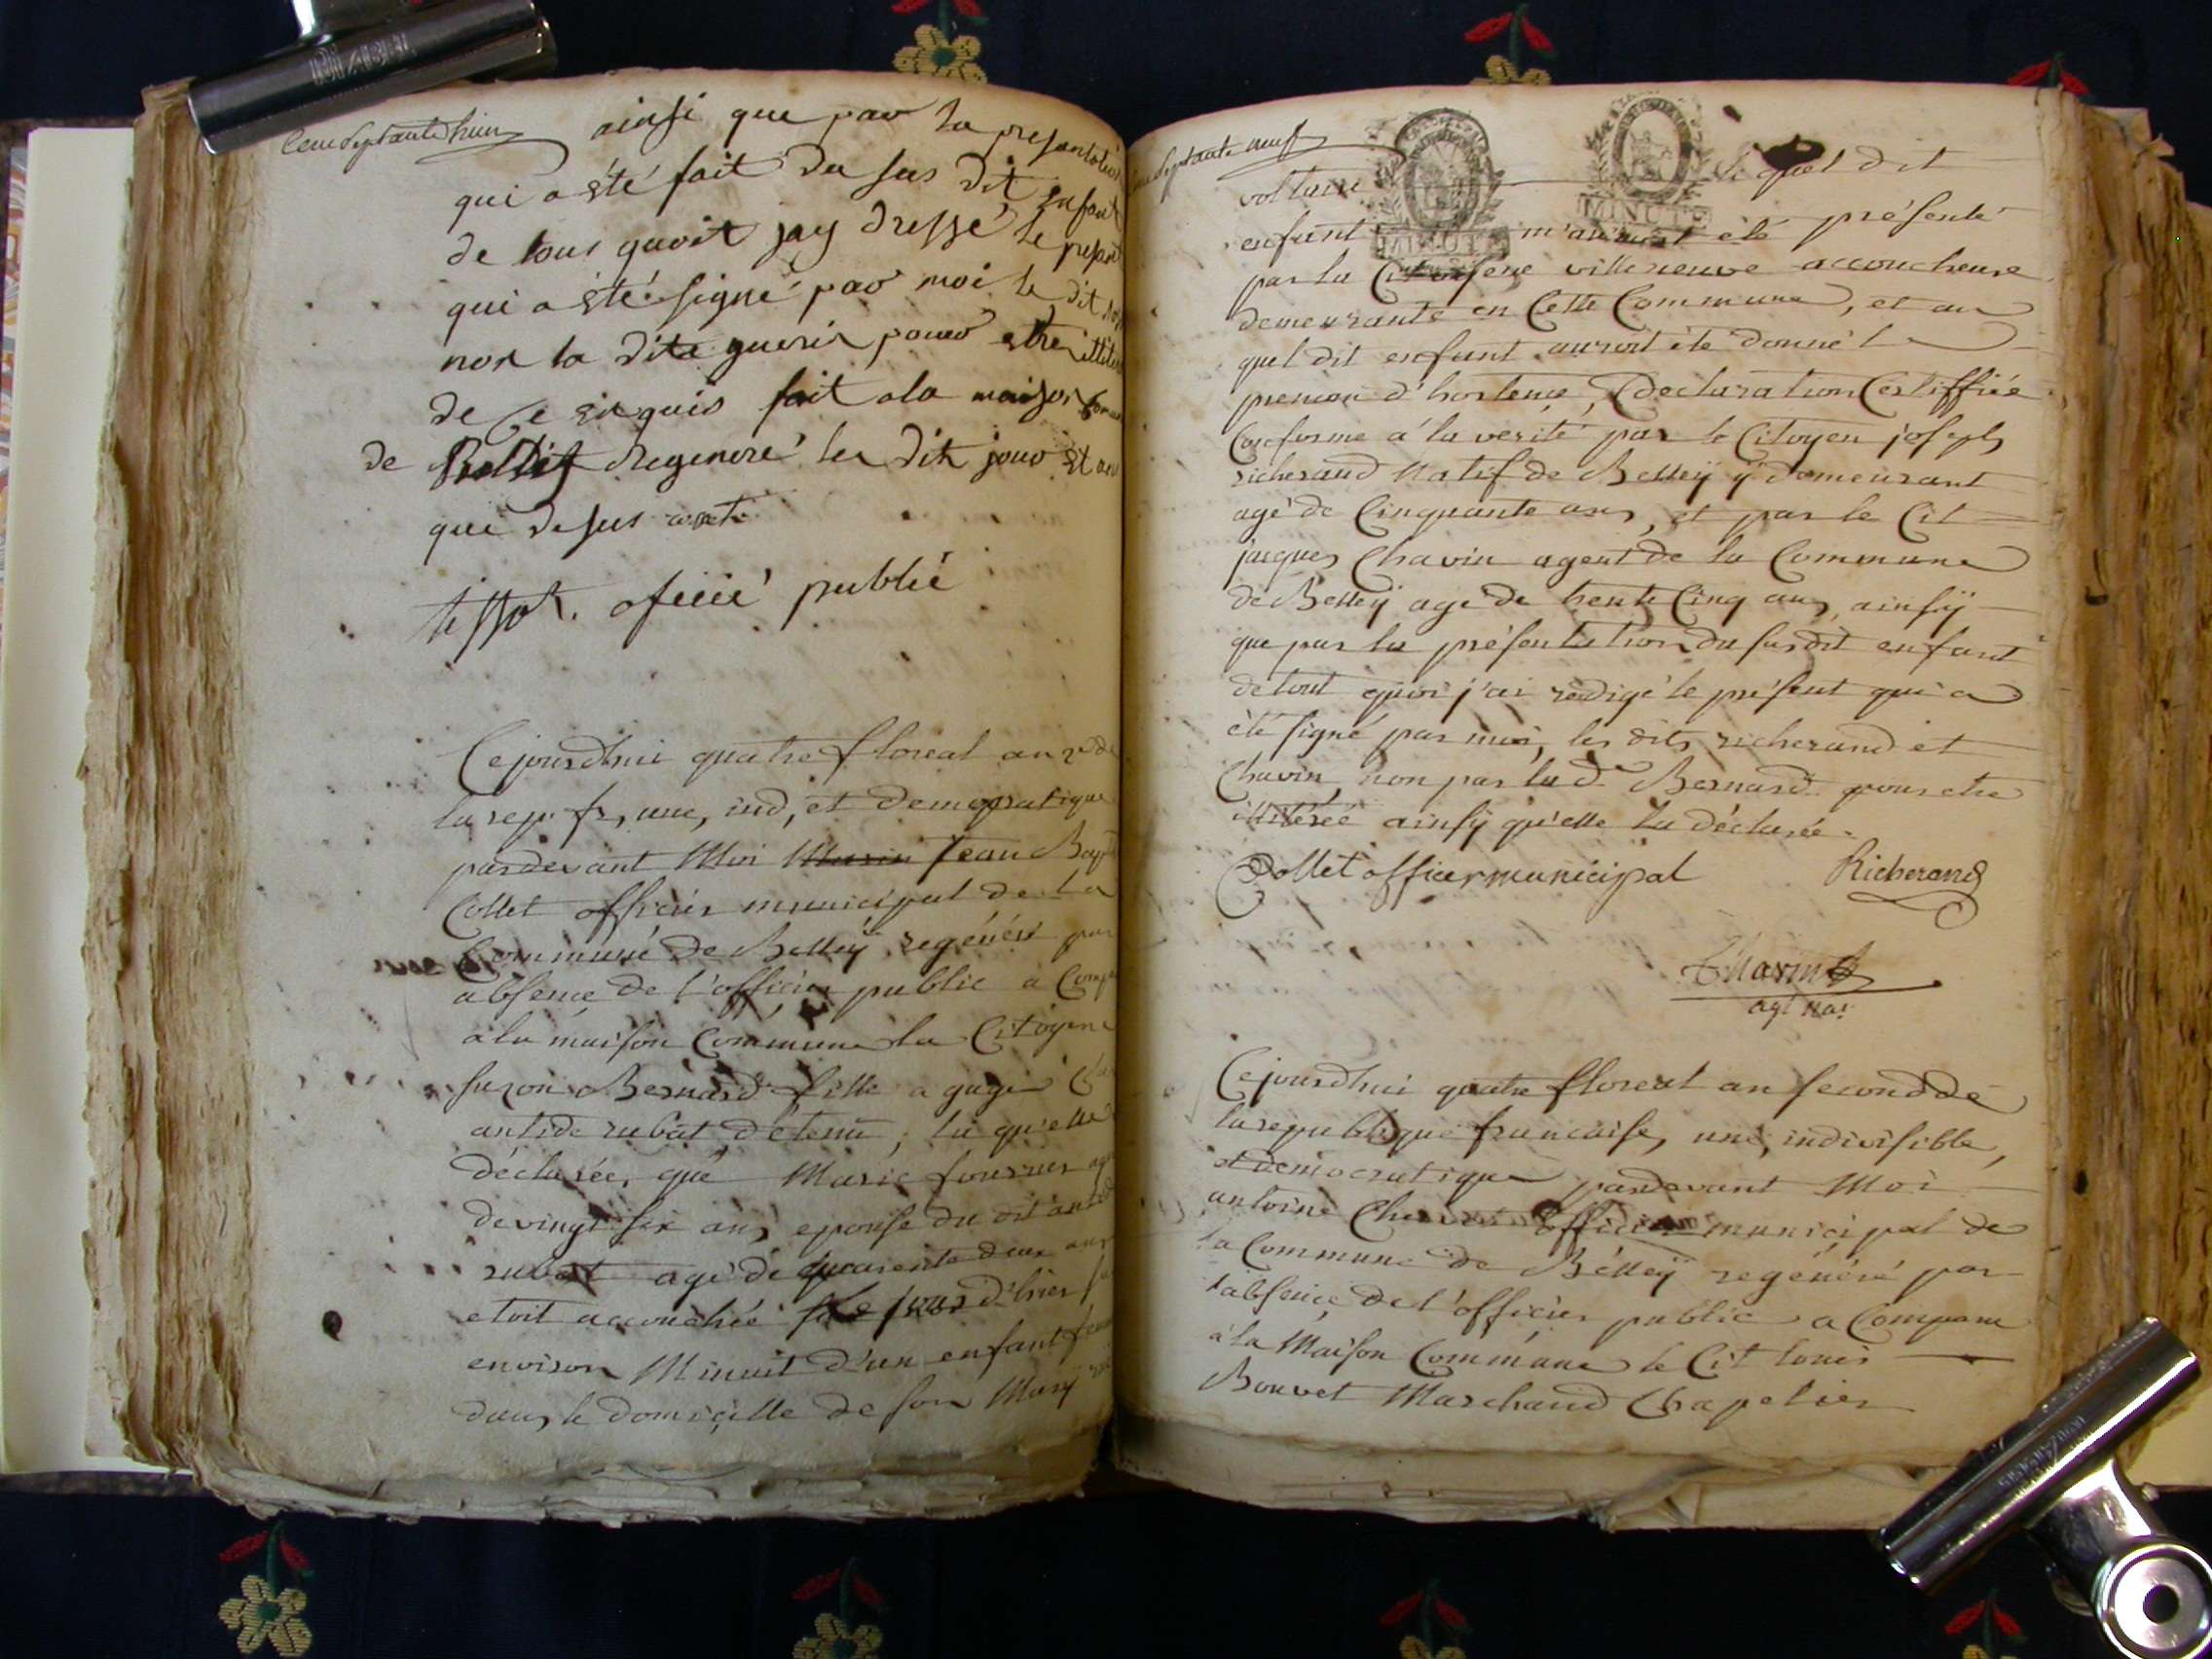 Cent septante huit
ainsi que par la presentation
qui a êté fait du sus dit enfant
de tous quoit jay dressé le present
qui a êté signé par moi le dit
non la dite guerin pour estre illitere
de ce enquis fait a la maison
de Bellej regeneré les dit jour et an
que desus
tissot. oficié publié
Cejourdhui quatre floreal an 2e de
la rep. fr, une, ind, et democratique
pardevant Moi Jean Bapt
Collet officier municipal de la
Commune de Belleÿ regénéré par
absence de l'officier public a Comp
a la maison Commune la Citoyene
suzon Bernard fille a gage
antide rubat détenu, la qu'elle
déclarée, que Marie fournier
de vingt six ans epouse du dit antide
rubat agé de quarente deux ans
etoit accouchée d'hier
environ Minuit d'un enfant
dans le domicille de son Mary
septante neuf
voltaire
MINUTE
MINUTE
le quel dit
enfant m'auroit été présenté
par la Citoyene villeneuve accoucheuse
demeurante en Cette Commune, et au
quel dit enfant auroit été donné l
prenom d'hortense, Declaration Certiffiée
Conforme à la verité par le Citoyen joseph
richerand Natif de Belleÿ y demeurant
agé de Cinquante ans, et par le Cit
jacques Chavin agent de la Commune
de Belleÿ agé de trente Cinq ans, ainsÿ
que par la présentation du susdit enfant
de tout quoi j'ai redigé le présent qui a
été signé par moi, les dits richerand et
Chavin, non par la de Bernard pour etre
illiterée ainsÿ qu'elle la déclarée.
Collet officier municipal Richerand
Chavin
agt nal
Cejourdhui quatre floreal an second de
la republique francaise, une, indivisible,
et democratique pardevant Moi
antoine officier municipal de
la Commune de Belleÿ regénéré par
l'absence de l'officier public a Comparu
à la Maison Commune le Cit louis
Bouvet Marchand Chapelier